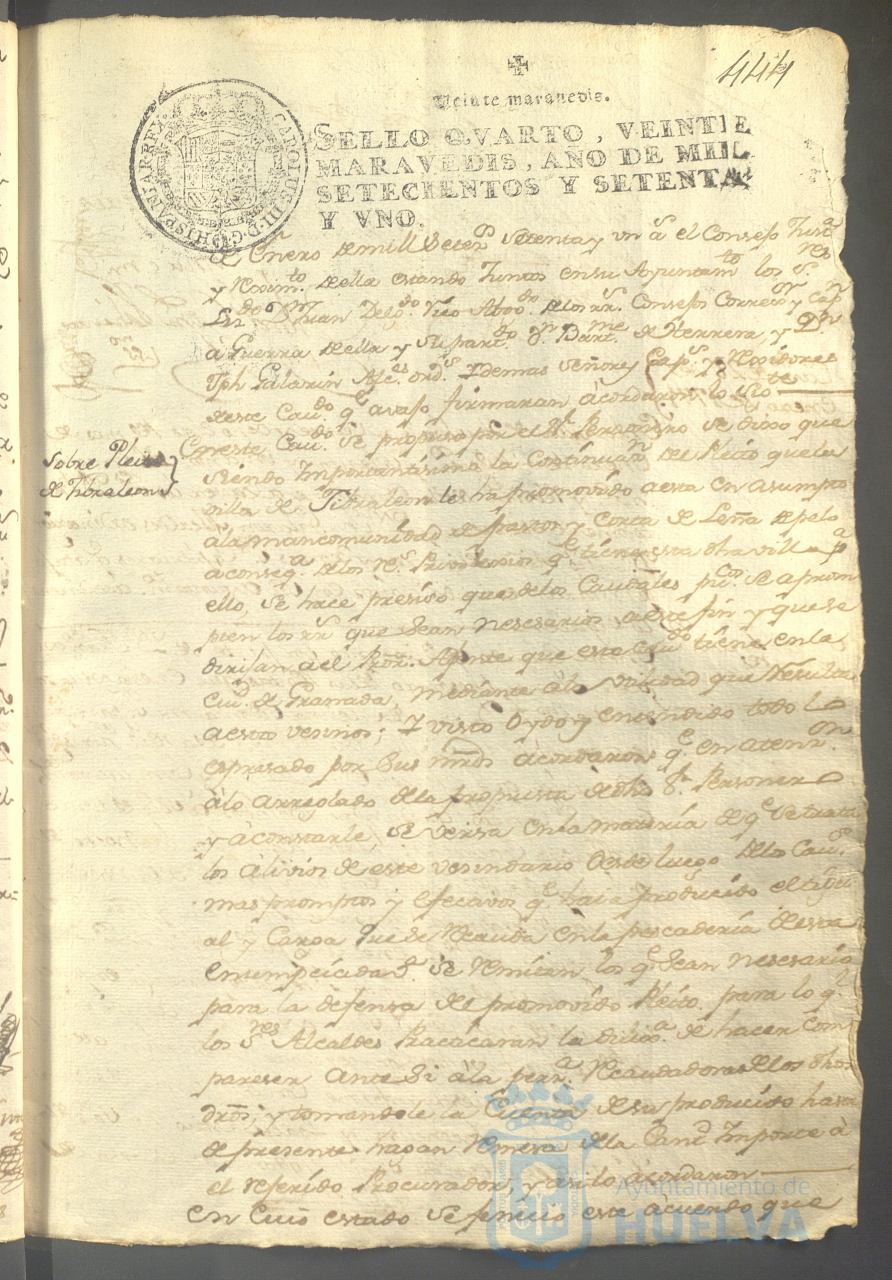 444
Veinte maravedis.
SELLO QVARTO, VEINTE
MARAVEDIS, AÑO DE MIL
SETECIENTOS Y SETENTA
Y VNO.
CAROLUS III D G HISPANIAR REX
de Enero de mill setez.s setenta y un a.s el Consejo Just.a
y Reximi.to de ella estando Juntos en su Ayuntam.to los S.res
Liz.do D.n Juan Delg.do Vico Abog.do de los R.s Consejos Correx.or y Cap.n
a Guerra de ella y su part.do D.n Bart.me de Herrera, y D.n
Jph Galarin Alc.es ord.s y demas señores Cap.s y Rexidores
de este Cav.do q.e avajo firmaran acordaron lo sig.te
Sobre Pleito
de Jibraleon
En este Cav.do se propuso por el S.r Personero se dixo que
siendo Importantisima la Continuaz.n de Pleito que la
villa de Jibraleon le ha promovido a esta en asumpto
a la mancomunidad de pastos y Corta de Leña
a conseq.a de los R.s Privilexios q.e tiene esta dha villa p.a
ello, se hace presiso que de los Caudales pu.cos se apromp
ten los rr.s que sean nesesarios a este fin y que se
dirijan a el Pror. Ajente que este Cav.do tiene en la
Ciu.d de Granada, mediante a la utilidad que resulta
a estos vesinos; Y visto Oydo y entendido todo lo
espresado por sus mrds acordaron q.e en atenz.on
a lo arreglado de la propuesta de dho S.r Personero
y a constarle, se versa en la materia de q.e se trata
los alivios de este vesindario desde luego de los Cau.s
mas promptos y efectivos q.e haia producido el
al y Carga que se recauda en la pescaderia de esta
se remitan los q.e sean nesesarios
para la defensa de el promovido Pleito. para lo q.e
los S.res Alcaldes Practicaran la dilix.a de hacer com
pareser Ante Si a la pers.a Recaudadora de los dhos
dros; y tomandole la Cuenta de su producido hasta
de presente hagan remesa de la Cant.d Importe a
el referido Procurador, y asi lo acordaron
En cuio estado se feneció este acuerdo que
Ayuntamiento de
HUELVA